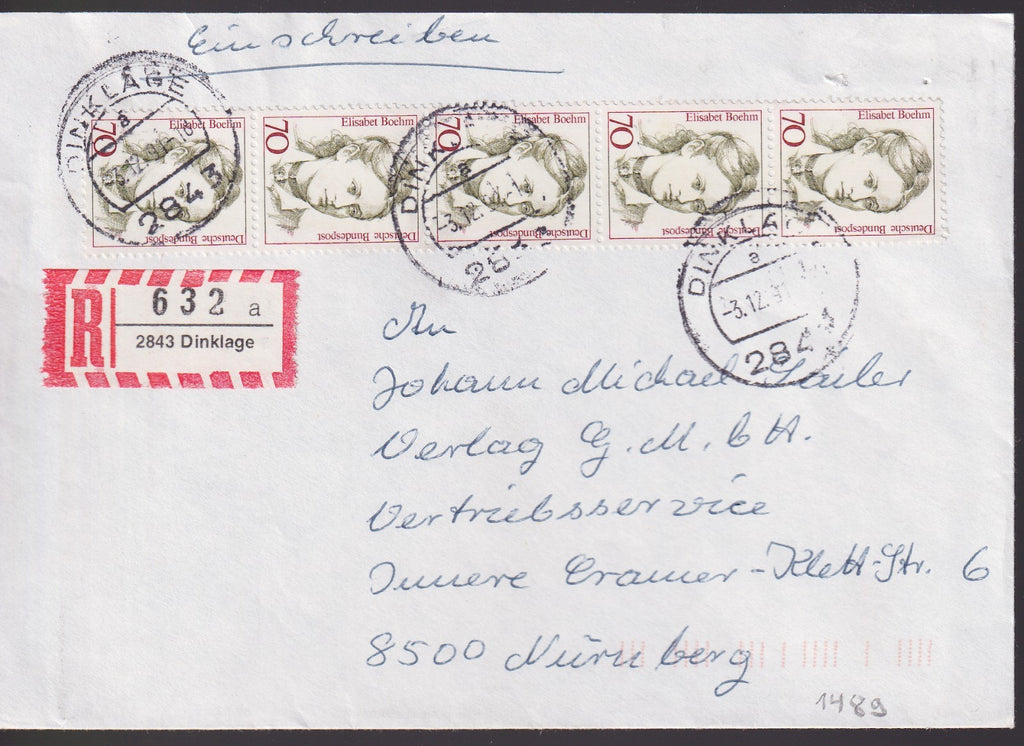 Einschreiben
DINKLAGE
a
-3.12.91
2843
70 Elisabet Boehm
Deutsche Bundespost
70 Elisabet Boehm
Deutsche Bundespost
70
Deutsche Bundespost
70 Elisabet Boehm
Deutsche Bundespost
70 Elisabet Boehm
Deutsche Bundespost
DINKLAGE
a
-3.12.
284
DINKLAGE
a
-3.12.91
2843
R 632 a
2843 Dinklage
An
Johann Michael Sailer
Verlag G.M.bH.
Vertriebsservice
Innere Cramer-Klett-Str. 6
8500 Nürnberg
1489